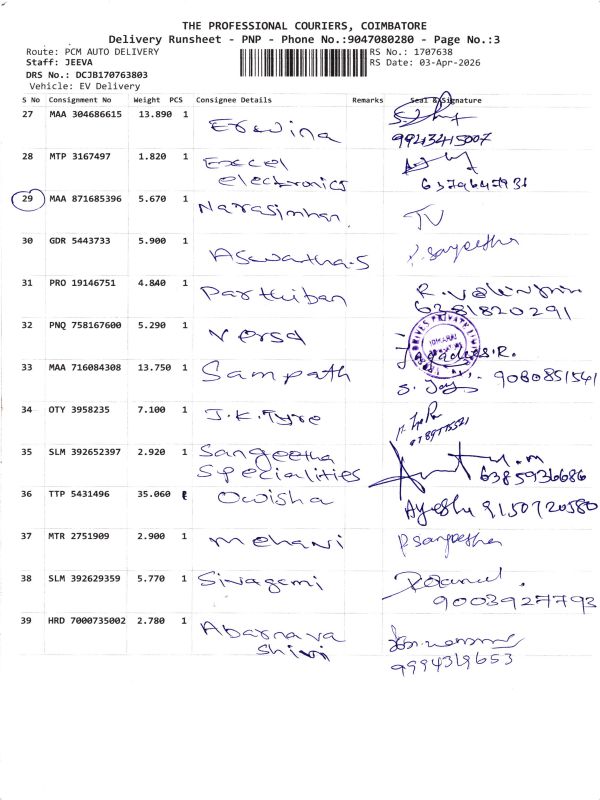 THE PROFESSIONAL COURIERS, COIMBATORE
Delivery Runsheet - PNP - Phone No.:9047080280 - Page No.:3
Route: PCM AUTO DELIVERY
RS No.: 1707638
Staff: JEEVA
RS Date: 03-Apr-2026
DRS No.: DCJB170763803
Vehicle: EV Delivery
S No Consignment No Weight PCS Consignee Details Remarks Seal & Signature
27 MAA 304686615 13.890 1 Erwina
9943415007
28 MTP 3167497 1.820 1 Excel
electronics
29 MAA 871685396 5.670 1 Narasimhan TV
30 GDR 5443733 5.900 1 Aswatha.S P. Sangeetha
31 PRO 19146751 4.840 1 Parthiban
6281820291
32 PNQ 758167600 5.290 1 Versa
33 MAA 716084308 13.750 1 Sampath 9080851541
34 OTY 3958235 7.100 1 J.K.Tyre
35 SLM 392652397 2.920 1 Sangeetha
Specialities 6385936686
36 TTP 5431496 35.060 Owisha Ayesha 9150720580
37 MTR 2751909 2.900 1 Mehani P Sangeetha
38 SLM 392629359 5.770 1 Sivagami
9003927793
39 HRD 7000735002 2.780 1 Abarnava
Shini
9994319653